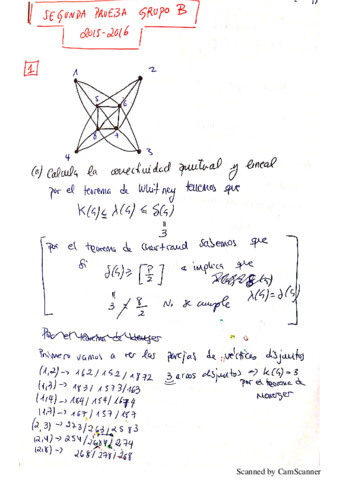 SEGUNDA PRUEBA GRUPO B
2015-2016
1
1 2
5 6
8 7
4 3
(a) Calcula la conectividad puntual y lineal
por el teorema de Whitney tenemos que
K(G) ≤ λ(G) ≤ δ(G)
=
3
por el teorema de Chartrand sabemos que
Si δ(G) ≥ [P/2] implica que
λ(G) = δ(G)
3 ≠ 8/2 No se cumple
Por el teorema de Menger
Primero vamos a ver las parejas de vértices disjuntos
(1,2) -> 162 / 152 / 1872 3 arcos disjuntos => K(G) = 3
(1,3) -> 183 / 1573 / 163 por el teorema de
(1,4) -> 184 / 154 / 1674 Menger
(1,7) -> 167 / 157 / 187
(2,3) -> 273 / 263 / 2583
(2,4) -> 254 / 2684 / 274
(2,8) -> 268 / 278 / 258
Scanned by CamScanner